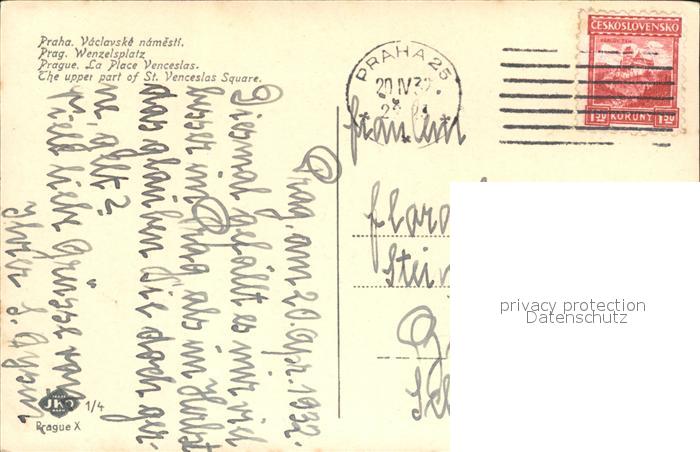 Praha. Václavské náměstí.
Prag. Wenzelsplatz
Prague. La Place Venceslas.
The upper part of St. Venceslas Square.
PRAHA 25
20 IV 32
ČESKOSLOVENSKO
1·50 KORUNY 1·50
Prag, am 20. Apr. 1932.
Diesmal gefällt es mir viel
besser in Prag als im Herbst
das glauben Sie doch ger-
ne, gelt?
Viele liebe Grüsse von
Ihrer
Fräulein
privacy protection
Datenschutz
JKO
1/4
Prague X